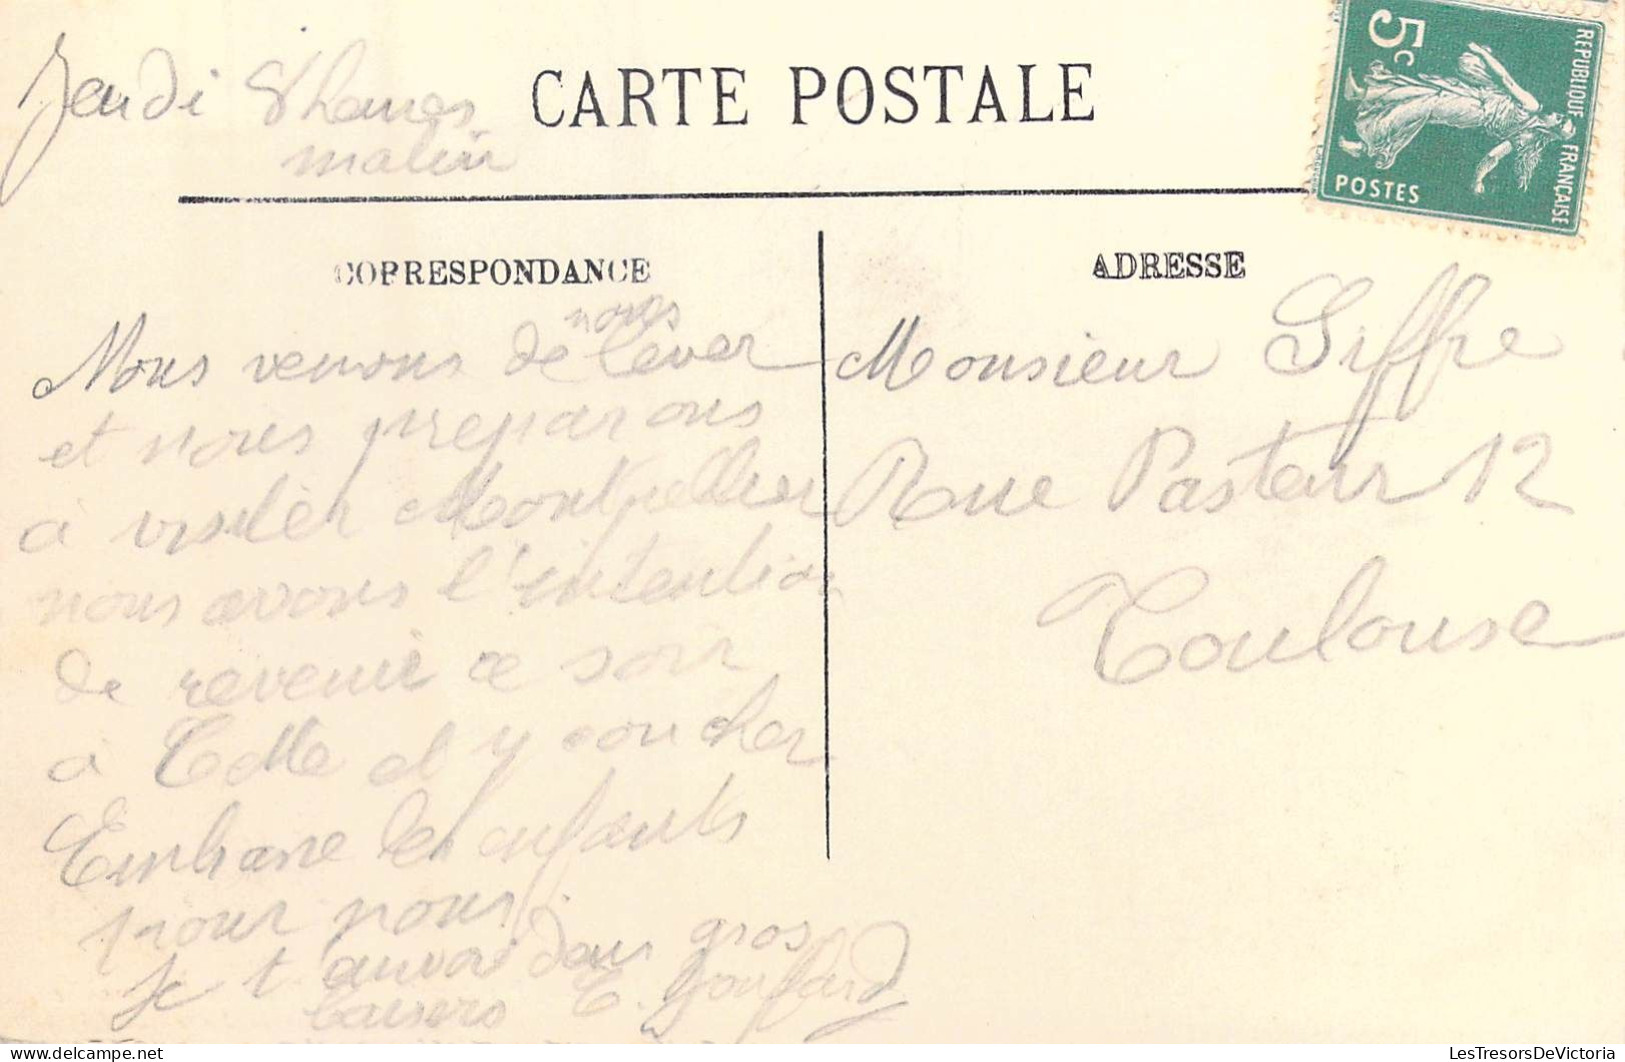 Jeudi 8 heures
matin
CARTE POSTALE
5c
REPUBLIQUE FRANÇAISE
POSTES
CORRESPONDANCE
nous
Nous venons de lever
et nous preparons
a visiter Montpellier
nous avons l'intention
de revenir ce soir
a Cette et y coucher
Embrasse les enfants
pour nous.
Je t'envoi dans gros
baisers E.
ADRESSE
Monsieur Siffre
Rue Pasteur 12
Toulouse
LesTresorsDeVictoria